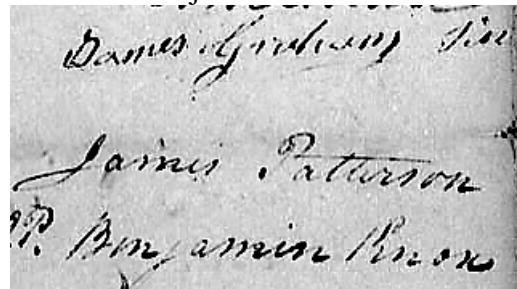 James Graham Sen
James Patterson
P. Benjamin Knox